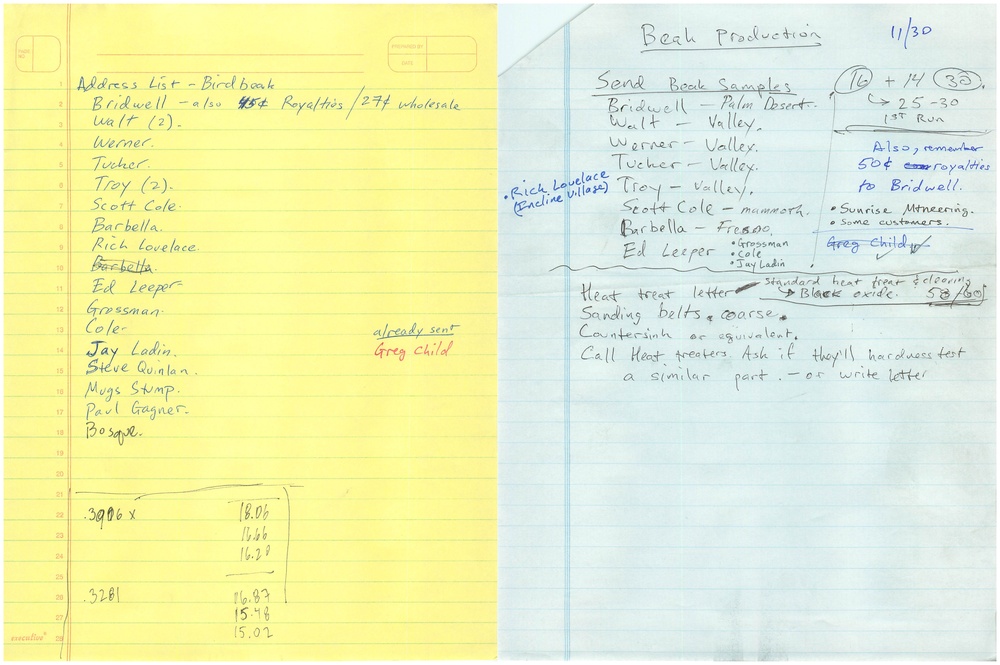 PAGE NO.
PREPARED BY
DATE
1 Address List - Birdbeak
2 Bridwell - also 45¢ Royalties / 27¢ wholesale
3 Walt (2).
4 Werner.
5 Tucker.
6 Troy (2).
7 Scott Cole.
8 Barbella.
9 Rich Lovelace.
10 Barbella.
11 Ed Leeper
12 Grossman.
13 Cole.
already sent
14 Jay Ladin.
Greg Child
15 Steve Quinlan.
16 Mugs Stump.
17 Paul Gagner.
18 Bosque.
19
20
21
22 .3906 x 18.06
23 16.66
24 16.28
25
26 .3281 16.87
27 15.48
28 15.02
executive
Beak Production
11/30
Send Beak Samples
Bridwell - Palm Desert.
Walt - Valley.
Werner - Valley.
Tucker - Valley.
• Rich Lovelace
(Incline Village)
Troy - Valley.
Scott Cole - mammoth.
Barbella - Fresno.
Ed Leeper
• Grossman
• Cole
• Jay Ladin
16 + 14 30.
25-30
1st Run
Also, remember
50¢ royalties
to Bridwell.
• Sunrise Mtneering.
• Some customers.
Greg Child
Heat treat letter
Standard heat treat & cleaning
Black oxide. 58/60
Sanding belts coarse.
Countersink or equivalent.
Call Heat treaters. Ask if they'll hardness test
a similar part. - or write letter